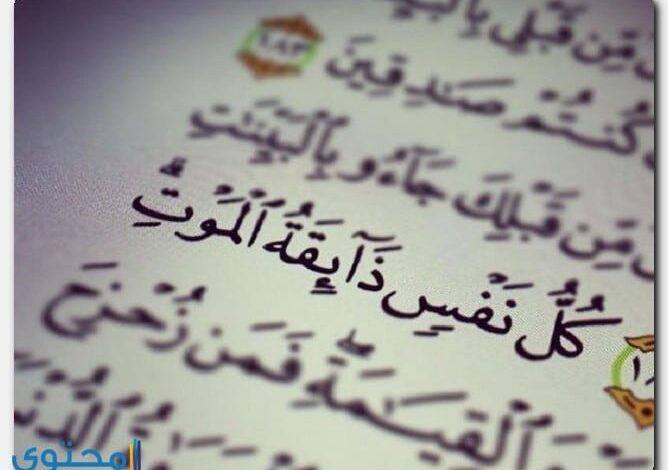 مِّن قَبْلِي بِالْبَيِّ
كُنتُمْ صَـٰدِقِينَ ١٨٣
مِّن قَبْلِكَ جَآءُو بِٱلْبَيِّنَـٰتِ
كُلُّ نَفْسٍ ذَآئِقَةُ ٱلْمَوْتِۗ
ٱلْقِيَـٰمَةِۖ فَمَن زُحْزِحَ
ٱلدُّنْ
المحتوى